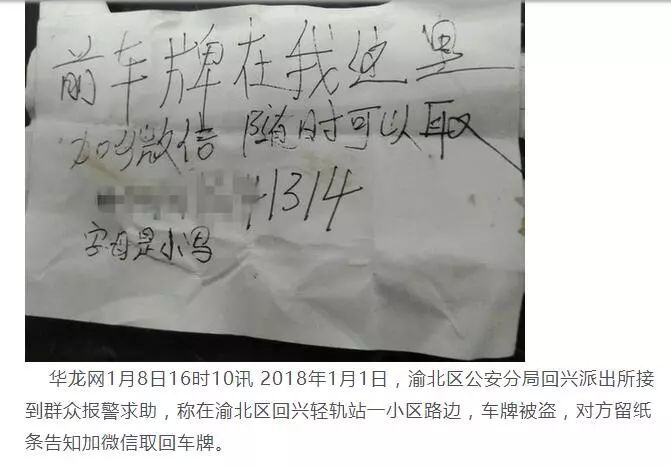 前车牌在我这里
加微信 随时可以取
1314
字母是小写
华龙网1月8日16时10讯 2018年1月1日，渝北区公安分局回兴派出所接
到群众报警求助，称在渝北区回兴轻轨站一小区路边，车牌被盗，对方留纸
条告知加微信取回车牌。